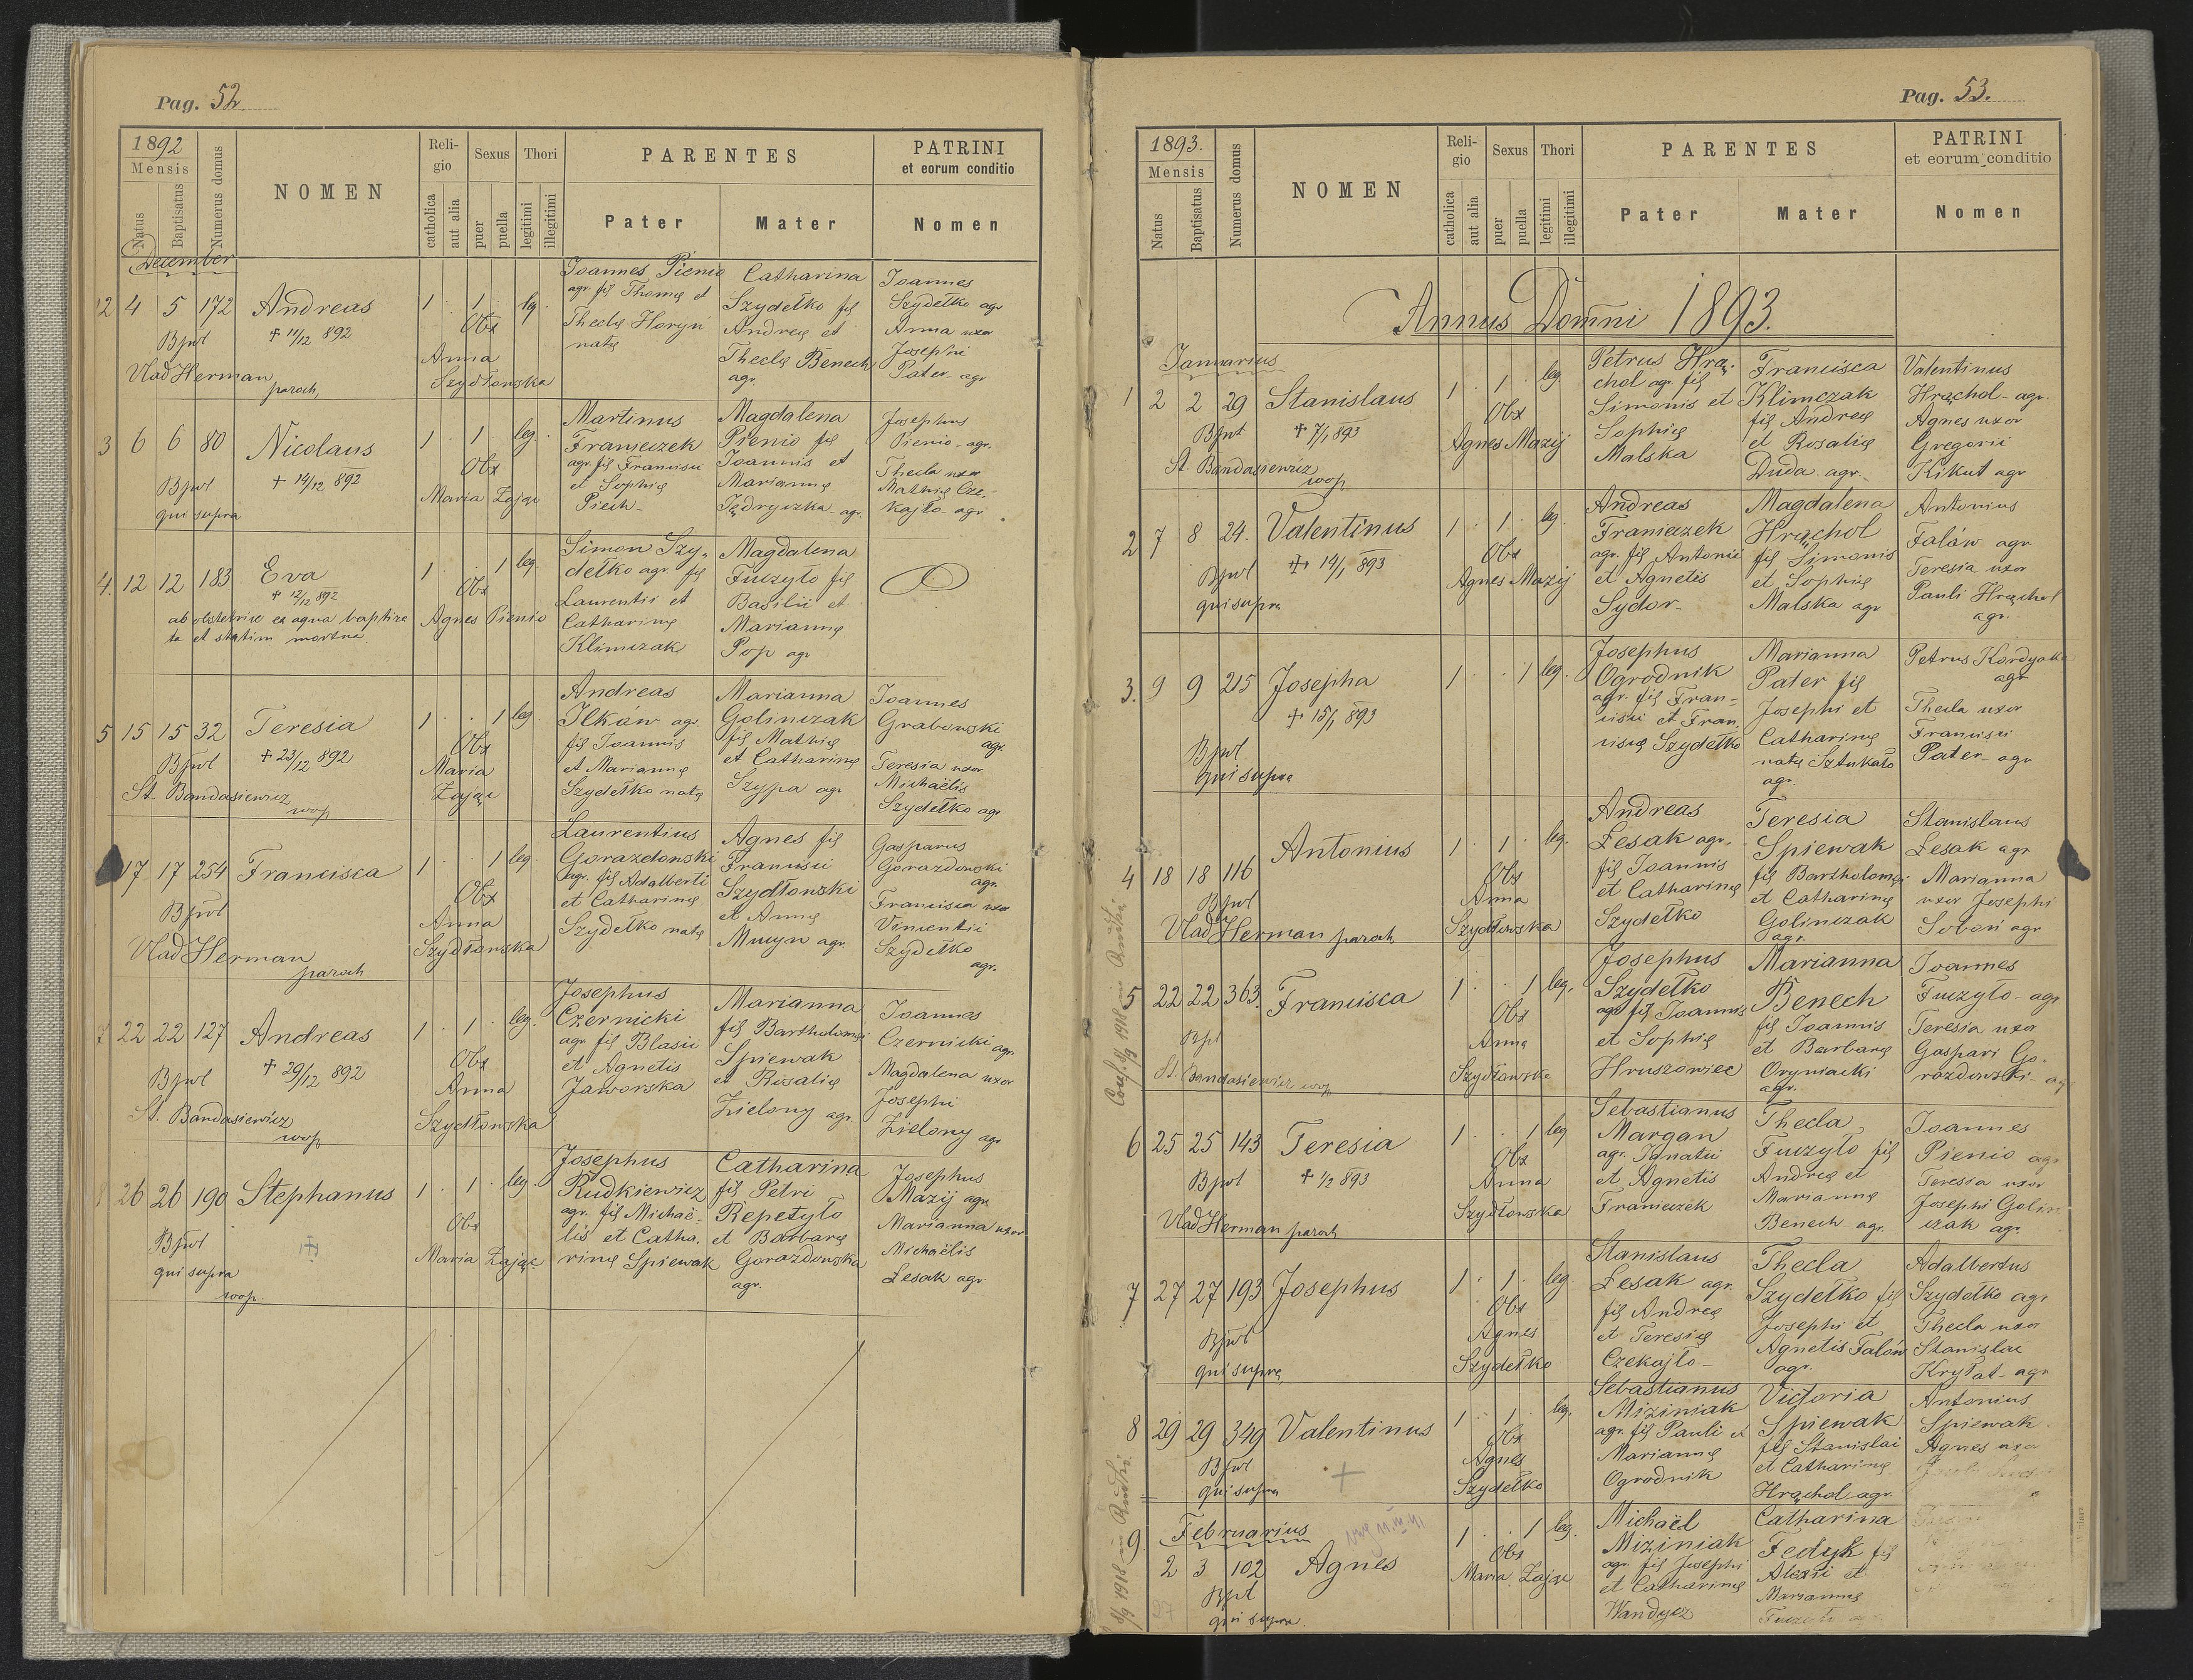 Pag. 52.
1892
Mensis
Natus
Baptisatus
Numerus domus
NOMEN
Reli-
gio
catholica
aut alia
Sexus
puer
puella
Thori
legitimi
illegitimi
PARENTES
Pater
Mater
PATRINI
et eorum conditio
Nomen
December
2 4 5 172 Andreas 1 · 1 · leg.
Bpwl + 11/12 892 Obx
Vlad Herman
paroch,
Anna
Szydłowska
Joannes Pienio
agr. fil Thomę et
Theclę Horyń
natę
Catharina
Szydełko fil
Andreę et
Theclę Benech
agr.
Joannes
Szydełko agr
Anna uxor
Josephi
Pater - agr
3 6 6 80 Nicolaus 1 · 1 · leg.
Bpwl + 14/12 892 Obx
qui supra
Maria Zając
Martinus
Franieczek
agr. fil Francisci
et Sophię
Piech-
Magdalena
Pienio fil
Joannis et
Mariannę
Jędryczka - agr.
Josephus
Pienio - agr.
Thecla uxor
Mathię Cze-
kajło - agr
4. 12 12 183 Eva 1 · · 1 leg.
+ 12/12 892 Obx
ab obstetrice ex aqua baptiza
ta et statim mortua
Agnes Pienio
Simon Szy-
dełko agr. fil
Laurentii et
Catharinę
Klimczak
Magdalena
Fuczyło fil
Basilii et
Mariannę
Pop agr
5 15 15 32 Teresia 1 · · 1 leg.
Bpwl + 23/12 892 Obx
St. Bandasiewicz
wop
Maria
Zając
Andreas
Ilków agr.
fil Joannis
et Mariannę
Szydełko natę
Marianna
Golinczak
fil Mathię
et Catharinę
Szypa agr
Joannes
Grabowski
agr.
Teresia uxor
Michaëlis
Szydełko agr
17 17 254 Francisca 1 · · 1 leg.
Bpwl Obx
Vlad Herman
paroch
Anna
Szydłowska
Laurentius
Gorazdowski
agr. fil Adalberti
et Catharinę
Szydełko natę
Agnes fil
Francisci
Szydłowski
et Annę
Mucyn agr.
Gasparus
Gorazdowski
agr.
Francisca uxor
Vincentii
Szydełko
agr.
7 22 22 127 Andreas 1 · 1 · leg.
Bpwl + 29/12 892 Obx
St. Bandasiewicz
woop
Anna
Szydłowska
Josephus
Czernicki
agr fil Blasii
et Agnetis
Jaworska
Marianna
fil Bartholomęi
Spiewak
et Rosalię
Zielony agr.
Joannes
Czernicki agr.
Magdalena uxor
Josephi
Zielony agr
26 26 190 Stephanus 1 · 1 · leg.
Bpwl Obx
qui supra
woop.
Maria Zając
Josephus
Rudkiewicz
agr. fil Michaë-
lis et Catha-
rinę Spiewak
Catharina
fil Petri
Repetyło
et Barbarę
Gorazdowska
agr.
Josephus
Mazij agr.
Marianna uxor
Michaëlis
Lesak agr.
Pag. 53.
1893.
Mensis
Natus
Baptisatus
Numerus domus
NOMEN
Reli-
gio
catholica
aut alia
Sexus
puer
puella
Thori
legitimi
illegitimi
PARENTES
Pater
Mater
PATRINI
et eorum conditio
Nomen
Annus Domni 1893.
Januarius
1 2 2 29 Stanislaus 1 · 1 · leg.
Bpwl + 7/1 893 Obx
St. Bandasiewicz
woop
Agnes Mazij
Petrus Hrą-
chol agr. fil
Simonis et
Sophię
Malska
Francisca
Klimczak
fil Andreę
et Rosalię
Duda. agr.
Valentinus
Hrąchol - agr.
Agnes uxor
Gregorii
Kikut agr
2 7 8 24. Valentinus 1 · 1 · leg.
Bpwl + 14/1 893 Obx
qui supra
Agnes Mazij
Andreas
Franieczek
agr. fil Antonii
et Agnetis
Sydor-
Magdalena
Hrąchol
fil Simonis
et Sophię
Malska agr
Antonius
Falów agr.
Teresia uxor
Pauli Hrąchol
agr.
3. 9 9 215 Josepha 1 · · 1 leg.
+ 15/1 893
Bpwl
qui supra
Josephus
Ogrodnik
agr. fil Fran-
cisci et Fran-
ciscę Szydełko
Marianna
Pater fil
Josephi et
Catharinę
natę Sztukało
agr.
Petrus Kordyaka
agr
Thecla uxor
Francisci
Pater - agr
4 18 18 116 Antonius 1 · 1 · leg.
Bpwl Obx
Vlad Herman paroch
Anna
Szydłowska
Andreas
Lesak agr.
fil Joannis
et Catharinę
Szydełko
Teresia
Spiewak
fil Bartholomęi
et Catharinę
Golinczak
agr.
Stanislaus
Lesak agr
Marianna
uxor Josephi
Soboń agr
5 22 22 363. Francisca 1 · · 1 leg.
Bpl Obx
St. Bandasiewicz woop
Anna
Szydłowska
Josephus
Szydełko
agr fil Joannis
et Sophię
Hruszowiec
Marianna
Benech
fil Joannis
et Barbarę
Orymacki
agr.
Joannes
Fuczyło - agr
Teresia uxor
Gaspari Go-
razdowski - agr
6 25 25 143 Teresia 1 · · 1 leg
Bpwl + 1/2 893 Obx
Vlad Herman paroch
Anna
Szydłowska
Sebastianus
Margan
agr. Ignatii
et Agnetis
Franieczek
Thecla
Fuczyło fil
Andreę et
Mariannę
Benech - agr.
Joannes
Pienio agr
Teresia uxor
Josephi Golin
czak agr.
7 27 27 193 Josephus 1 · 1 · leg.
Bpwl Obx
qui supra
Agnes
Szydełko
Stanislaus
Lesak agr.
fil Andreę
et Teresię
Czekajło-
Thecla
Szydełko fil
Josephi et
Agnetis Falów
agr.
Adalbertus
Szydełko agr
Thecla uxor
Stanislai
Kryłat - agr
8 29 29 349 Valentinus 1 · 1 · leg.
Bpwl Obx
qui supra
Agnes
Szydełko
Sebastianus
Miziniak
agr. fil Pauli et
Mariannę
Ogrodnik
Victoria
Spiewak
fil Stanislai
et Catharinę
Hrąchol agr.
Antonius
Spiewak
Agnes uxor
9. Februarius
2 3 102 Agnes 1 · · 1 leg.
Bpl Obx
qui supra.
Maria Zając
Michaël
Miziniak
agr. fil Josephi
et Catharinę
Wandycz
Catharina
Fedyk fil
Alexii et
Mariannę
Fuczyło